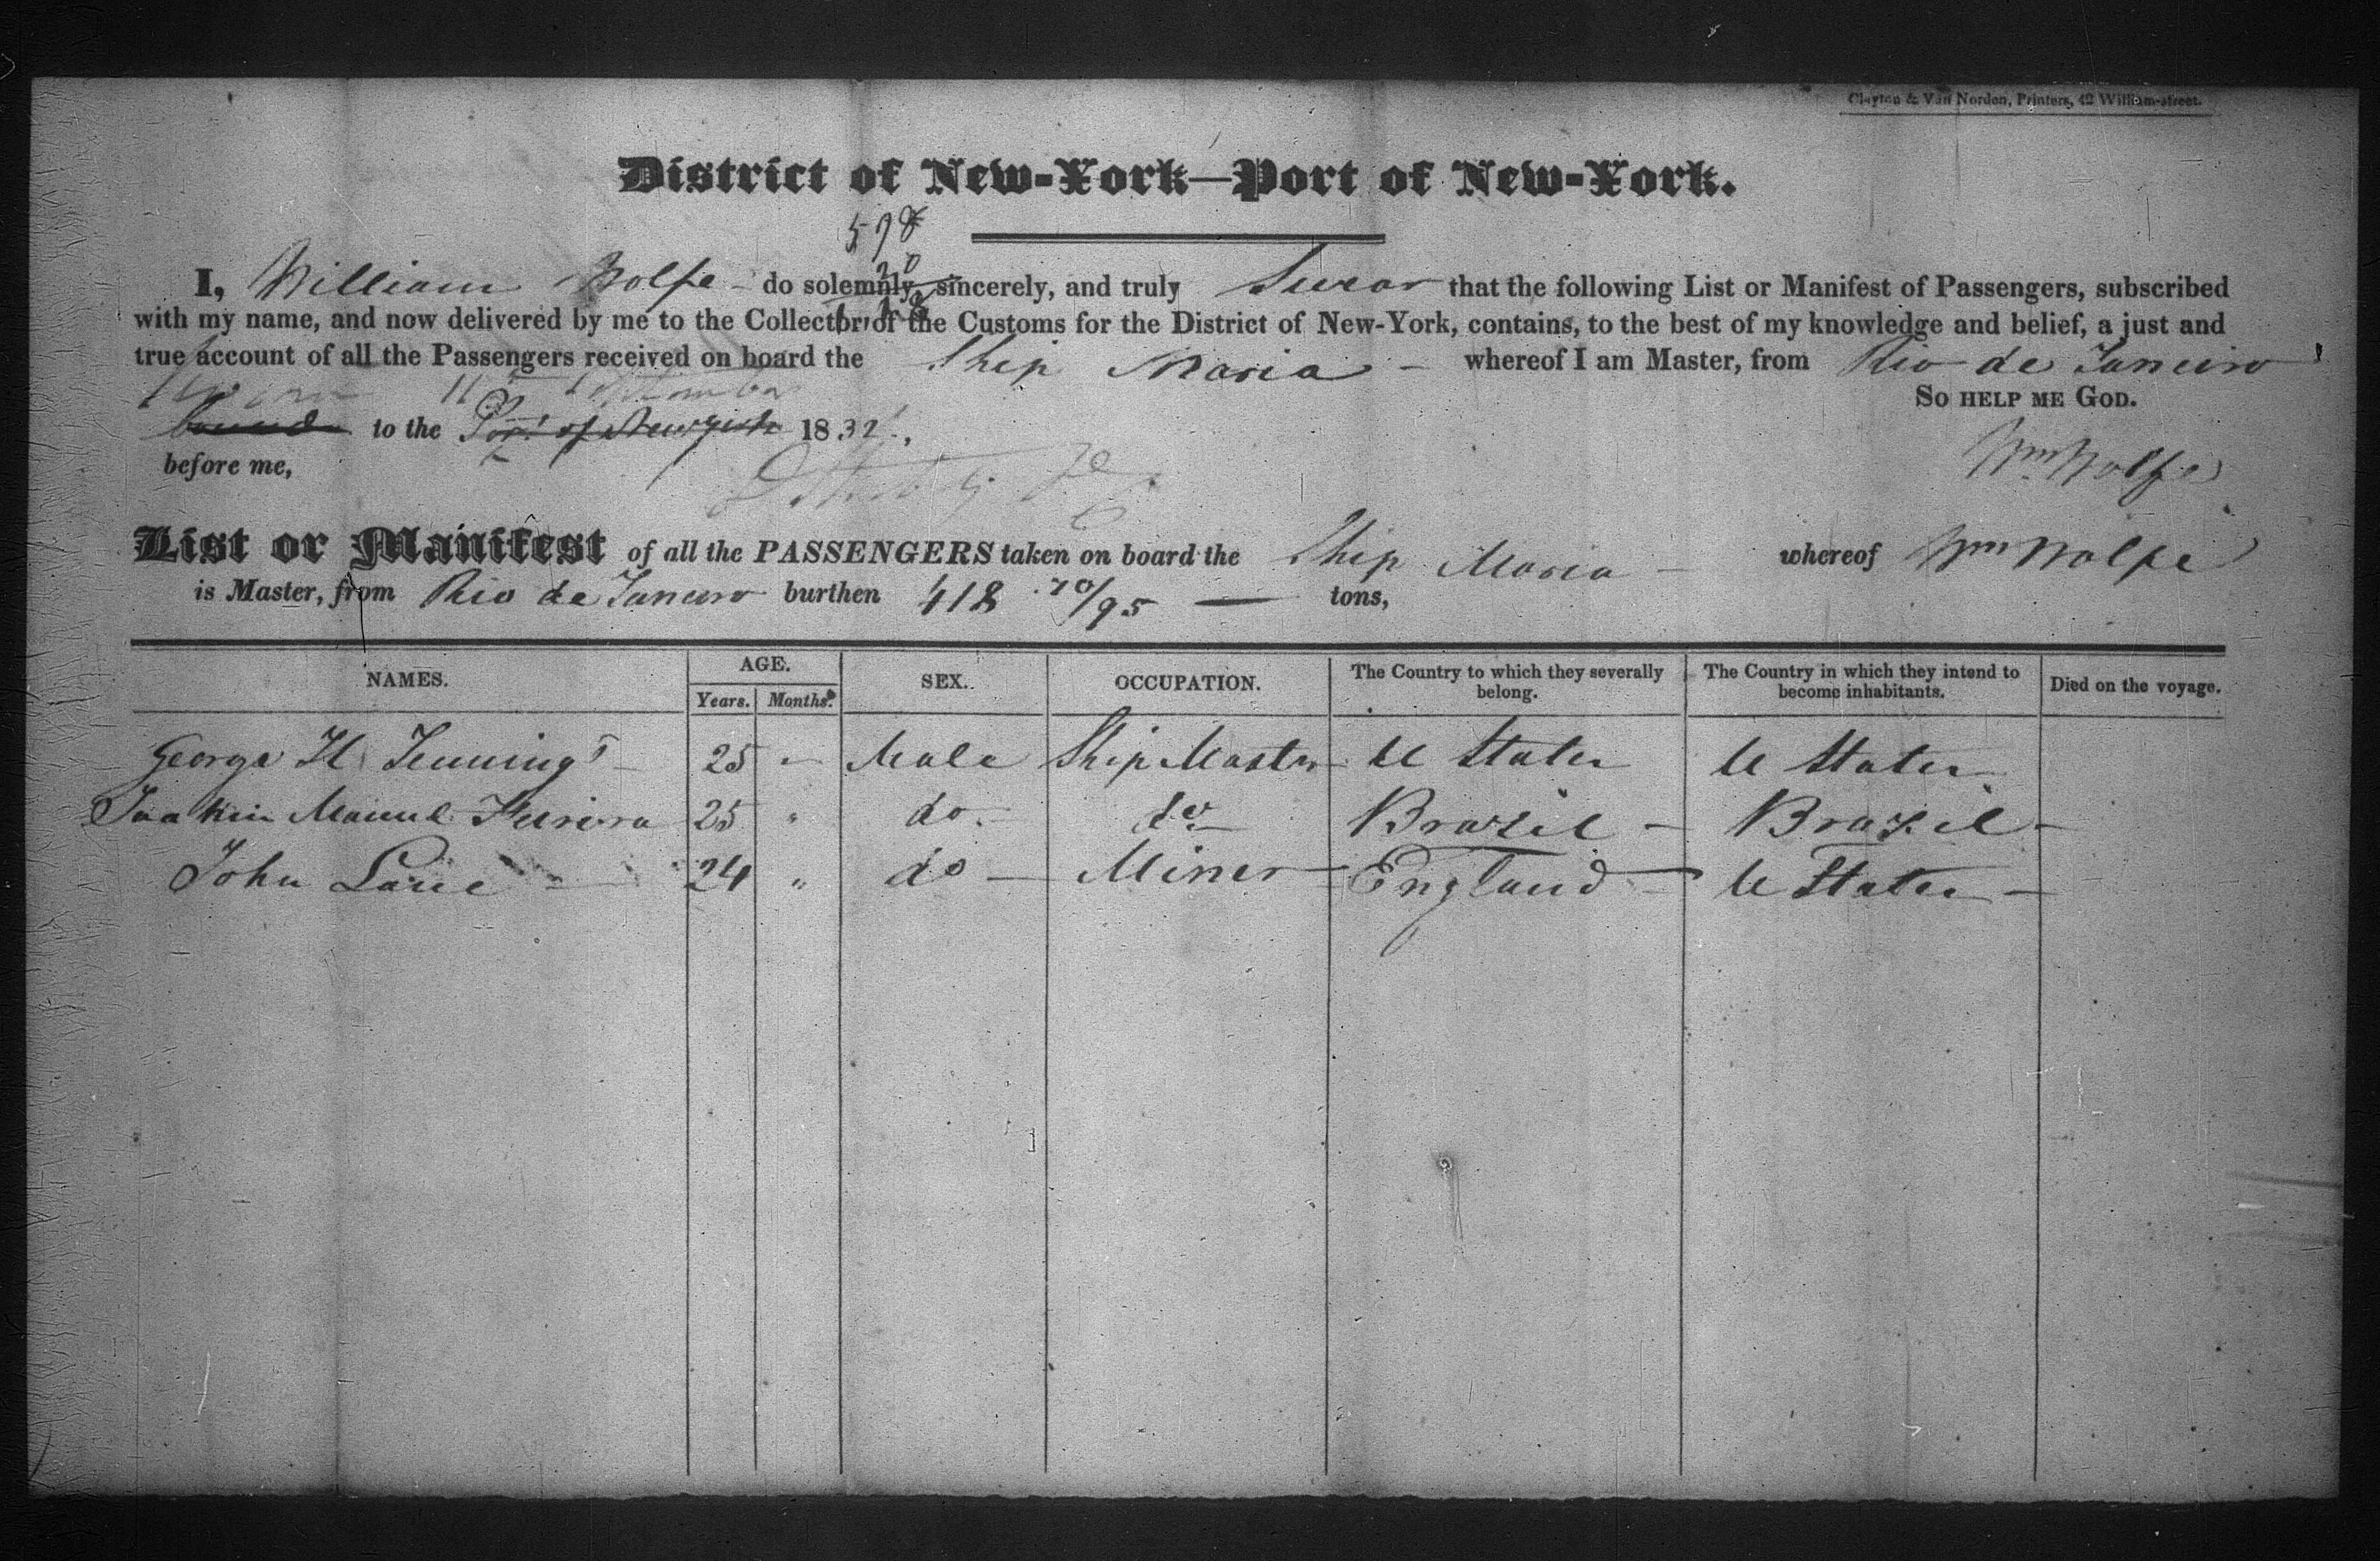 Clayton & Van Norden, Printers, 42 William-street.
District of New-York—Port of New-York.
598
20
I, William Wolfe do solemnly, sincerely, and truly Swear that the following List or Manifest of Passengers, subscribed
with my name, and now delivered by me to the Collector of the Customs for the District of New-York, contains, to the best of my knowledge and belief, a just and
true account of all the Passengers received on board the Ship Maria - whereof I am Master, from Rio de Janeiro
Sworn 11th September
So HELP ME GOD.
bound to the Port of New York 1832,
before me,
Wm Wolfe
List or Manifest of all the PASSENGERS taken on board the Ship Maria - whereof Wm Wolfe
is Master, from Rio de Janeiro burthen 418 70/95 — tons,
NAMES. AGE. SEX. OCCUPATION. The Country to which they severally belong. The Country in which they intend to become inhabitants. Died on the voyage.
Years. Months.
George H Jennings 25 " Male Ship Master U States U States
Joakin Manuel Fereira 25 " do. do. Brazil - Brazil -
John Lane 24 " do - Miner England - U States -